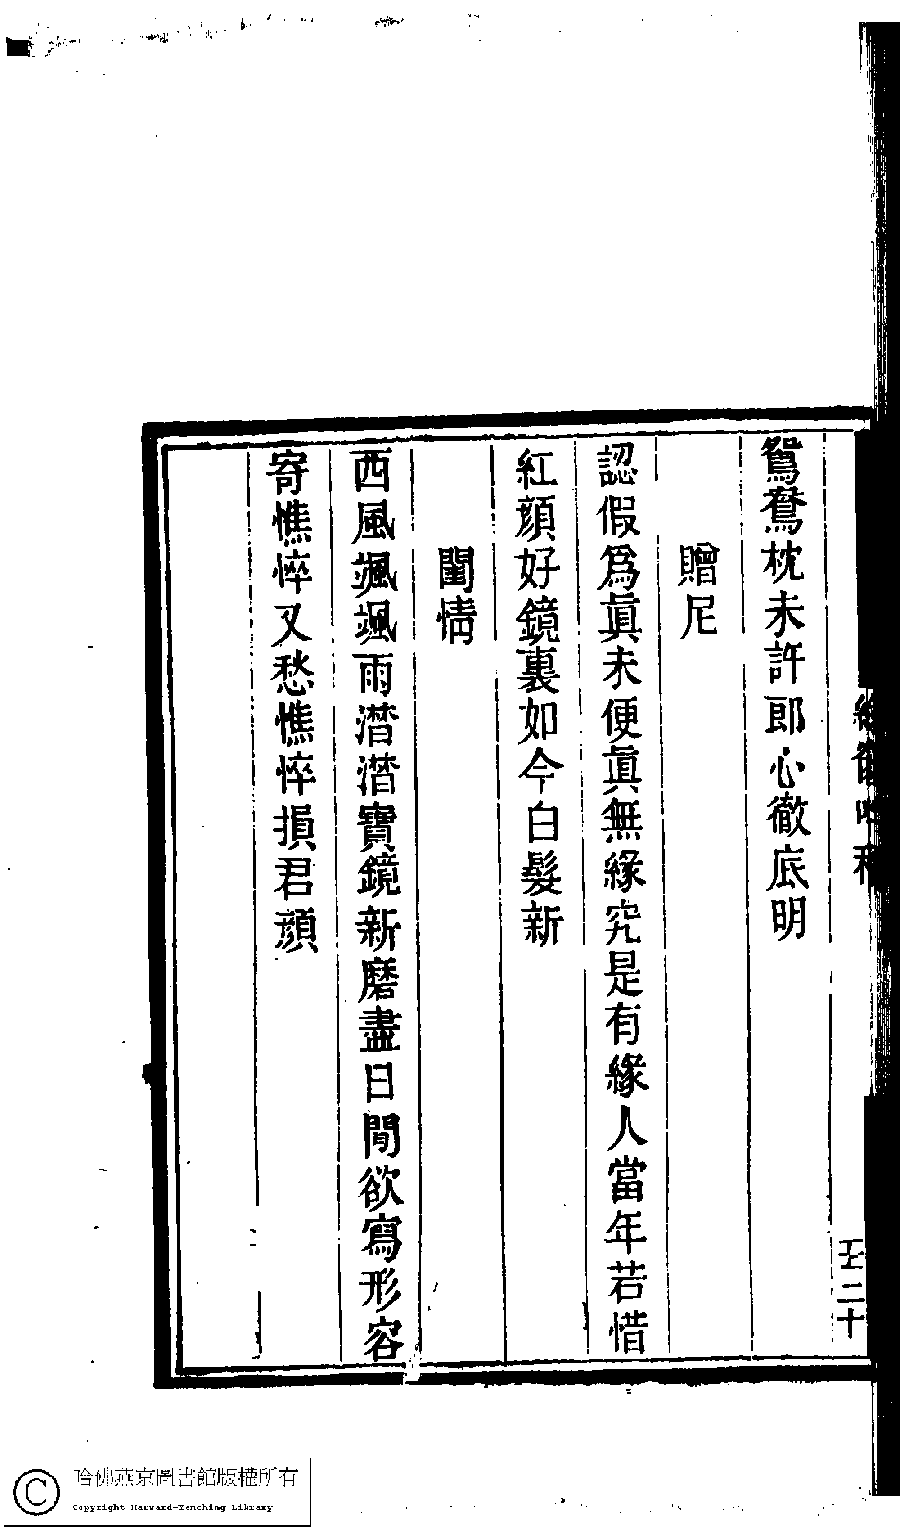 鴛鴦枕未許郎心徹底明
贈尼
認假爲眞未便眞無緣究是有緣人當年若惜
紅顏好鏡裏如今白髮新
閨情
西風颯颯雨潸潸寶鏡新磨盡日閒欲寫形容
寄憔悴又愁憔悴損君顏
二十
哈佛燕京圖書館版權所有
Copyright Harvard-Yenching Library